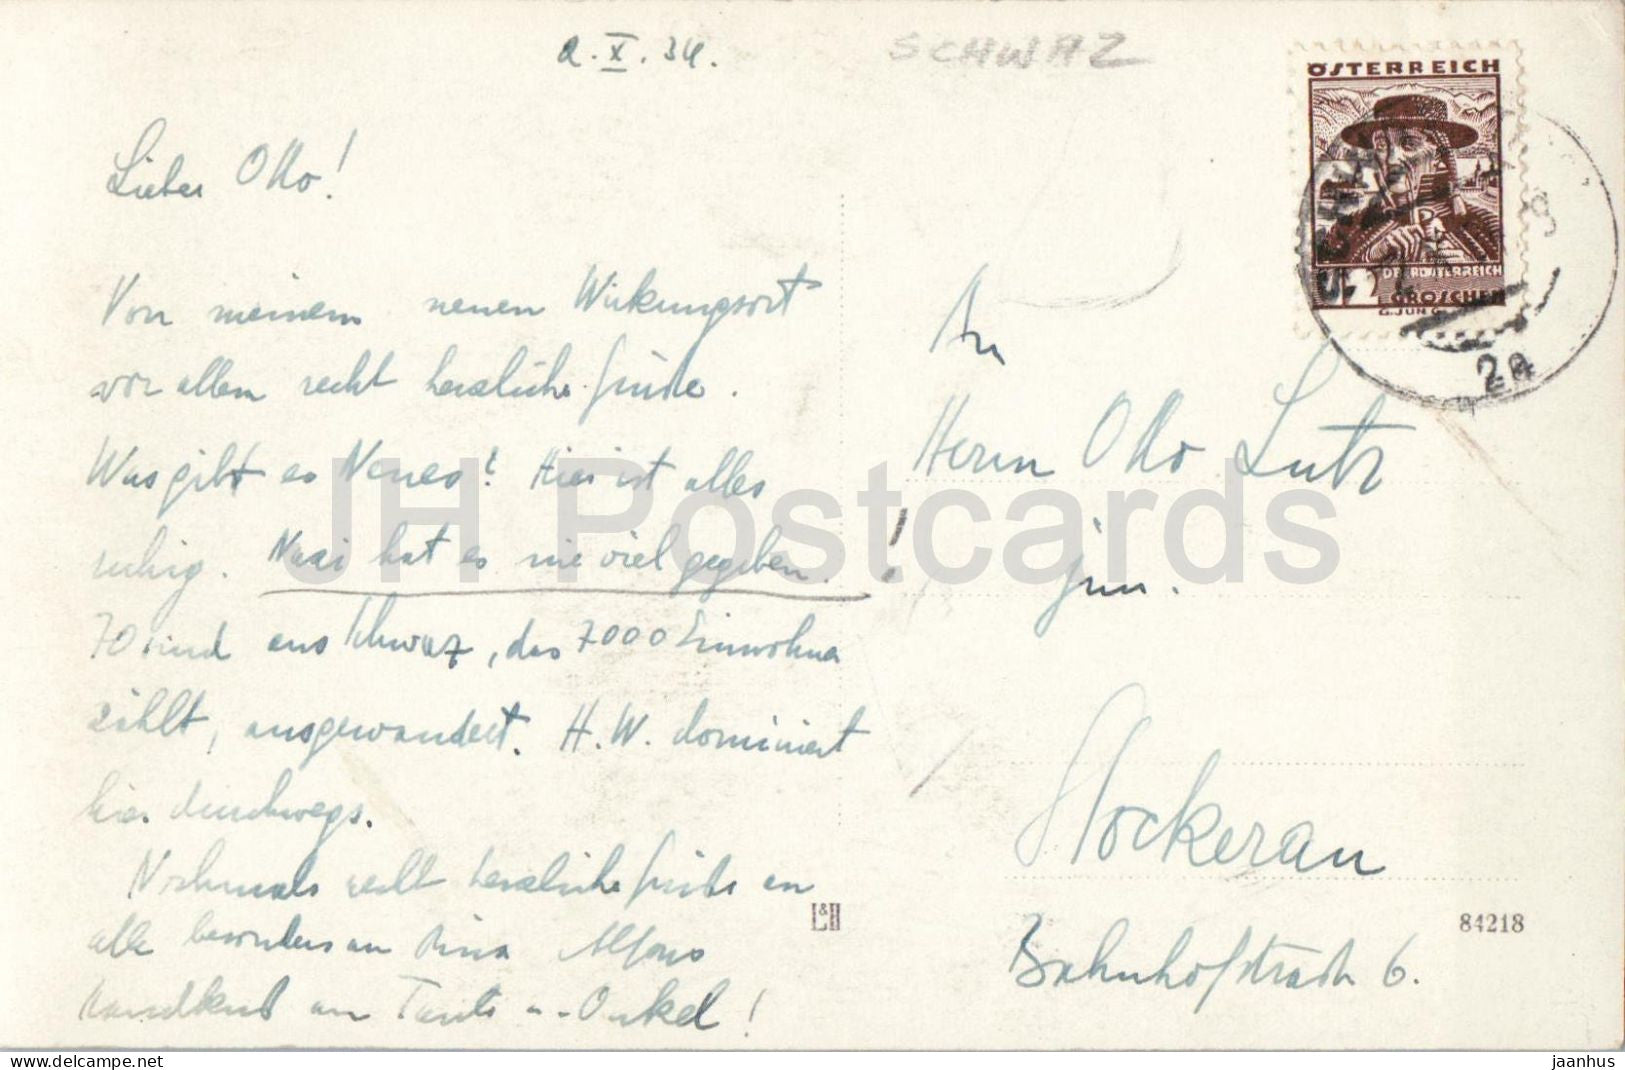 2.X.34.
SCHWAZ
ÖSTERREICH
GROSCHEN
Lieber Otto!
Von meinem neuen Wirkungsort
vor allem recht herzliche Grüße.
Was gibt es Neues? Hier ist alles
ruhig. Nazi hat es nie viel gegeben.
70 sind aus Schwaz, das 7000 Einwohner
zählt, ausgewandert. H.W. dominiert
hier durchwegs.
Nochmals recht herzliche Grüße an
alle besonders an Alfons
Handkuß an Tante u. Onkel!
An
Herrn Otto Lutz
jun.
Stockerau
Bahnhofstraße 6.
L&H
84218
2a
JH Postcards
oldthing.net
jaanhus